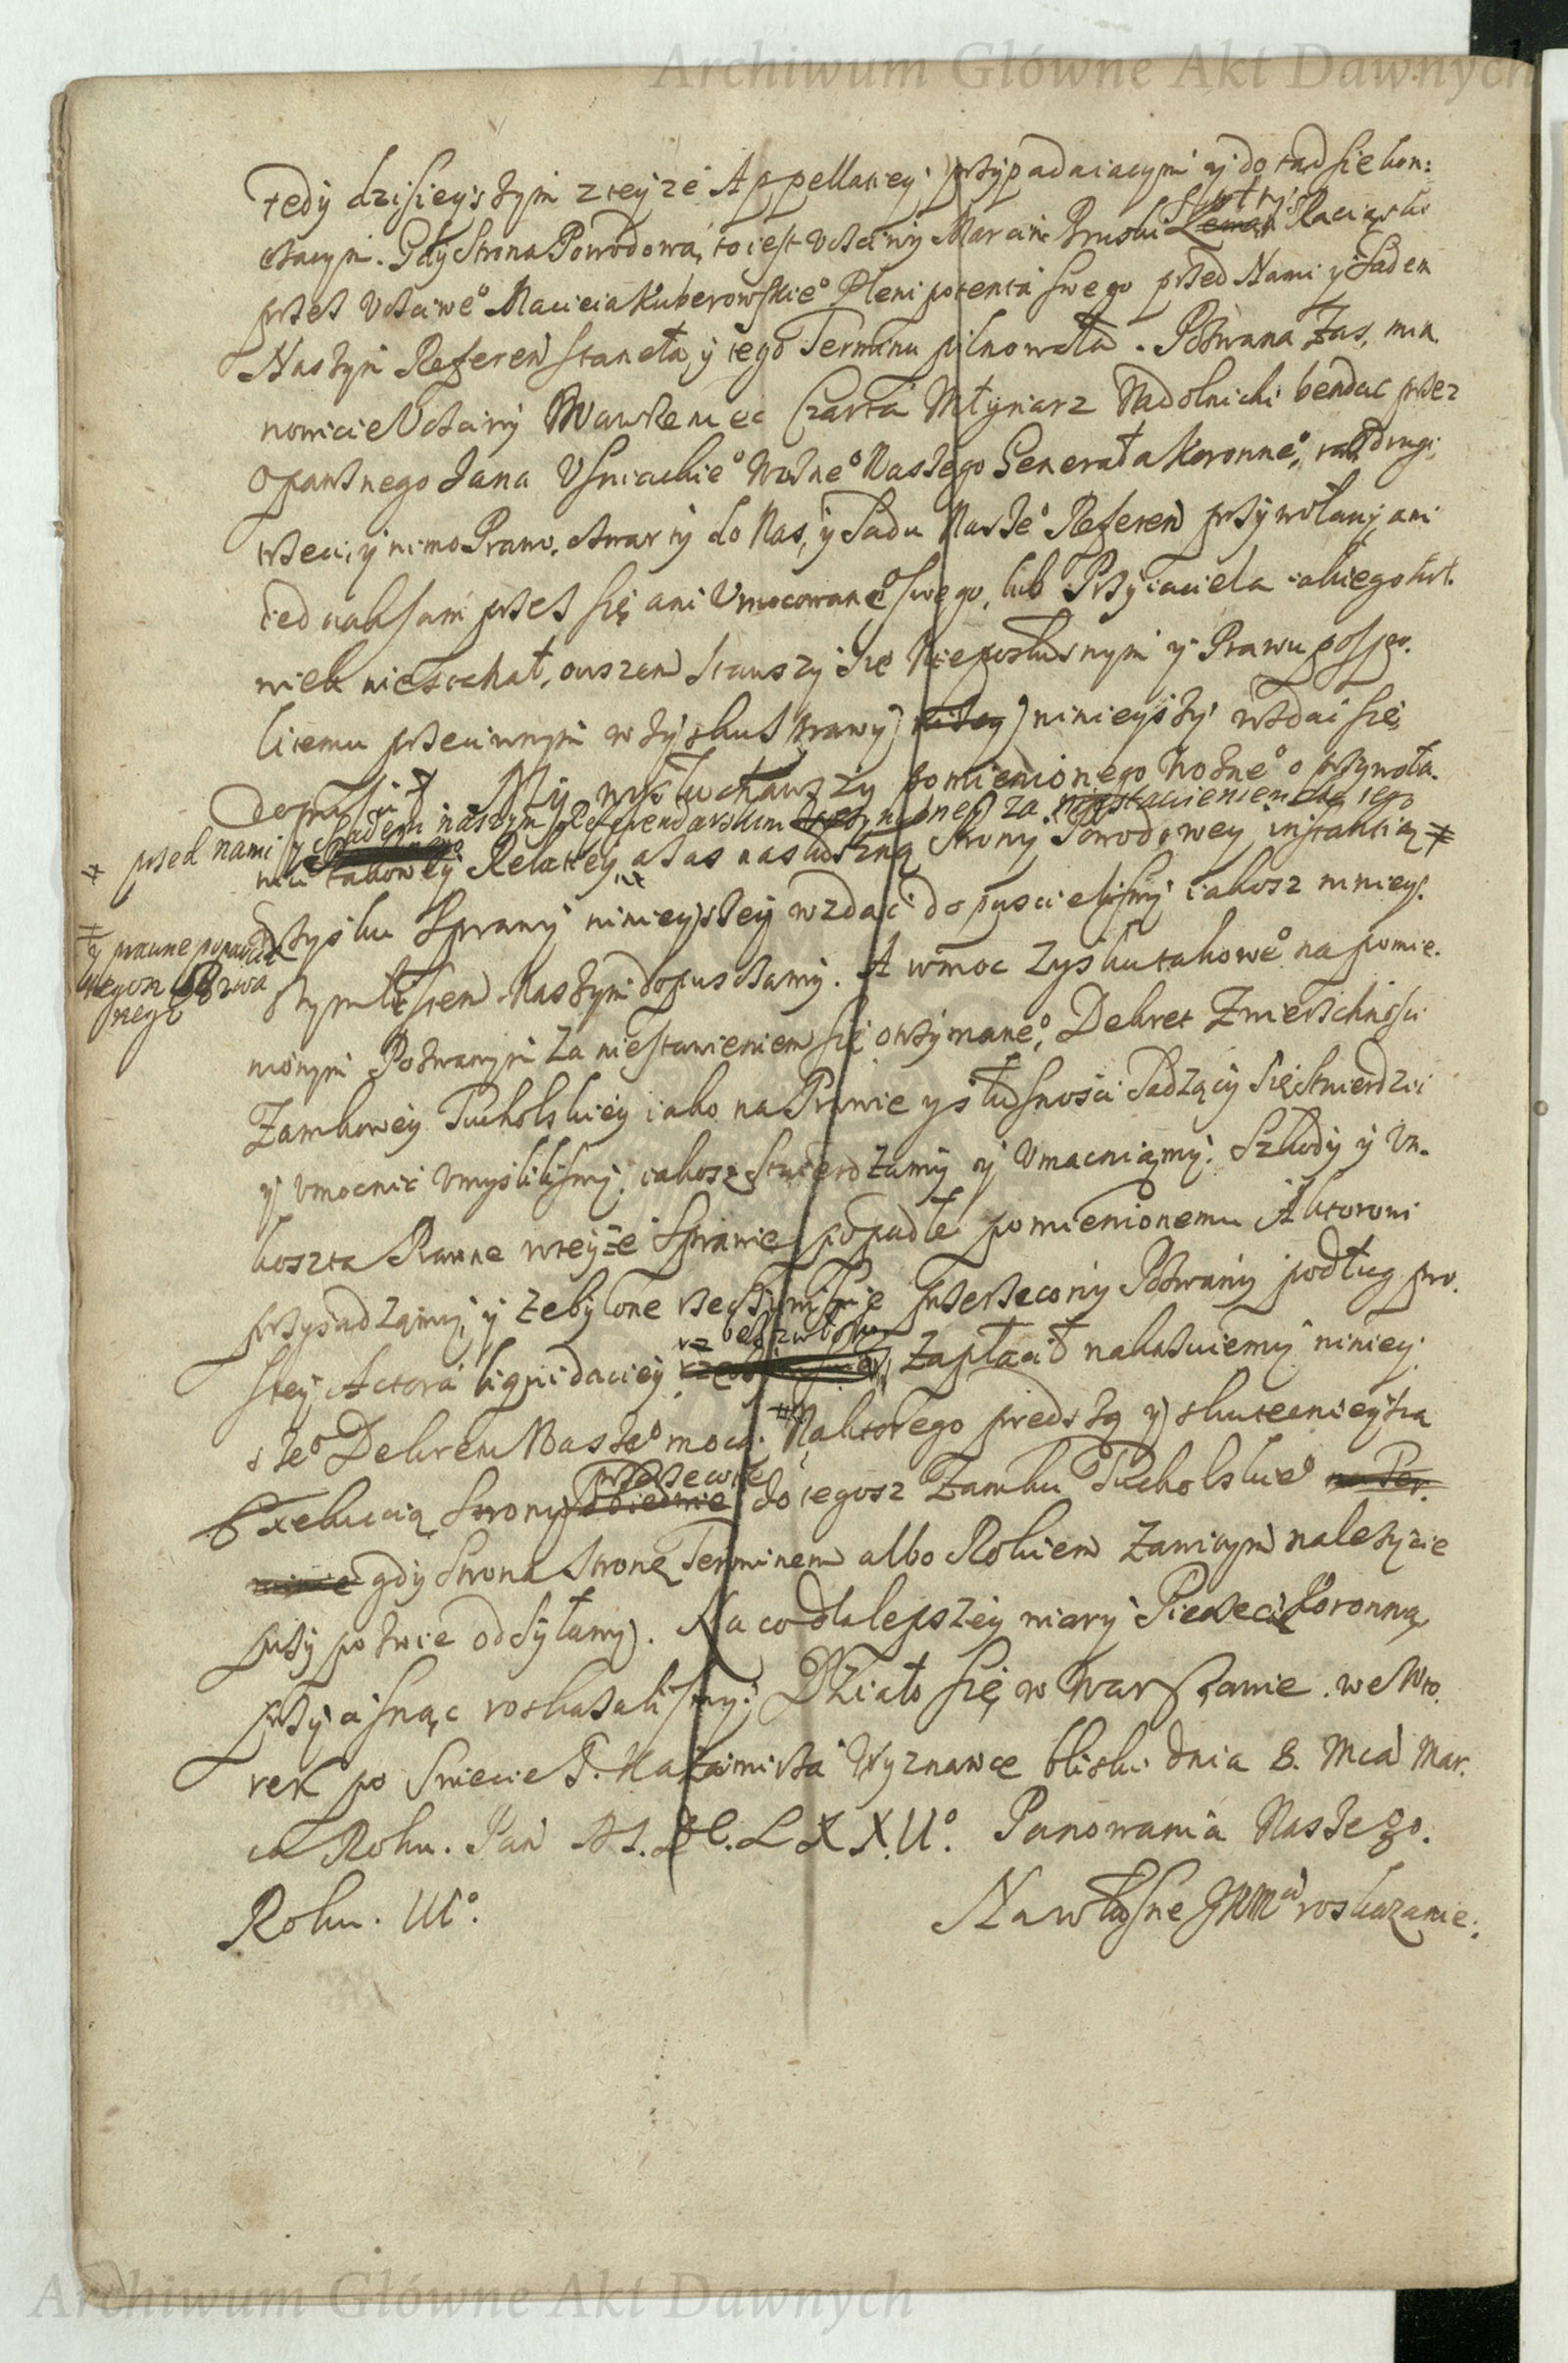 Archiwum Główne Akt Dawnych
tedy dzisieyszym z teyże Appellatiey przypadaiącym y do tąd się kon:
czącym. Gdy Strona Powodowa, to iest Uczciwy Marcin Pruski Sołtys Raciąski
przez Uczciwe° Macieia Kuberowskie° Plenipotenta swego przed Nami y Sądem
Naszym Referen stanęła, y tego Terminu pilnowała. Pozwana Zas, mia.
nowicie Uczciwy Wawrzeniec Czarta Młynarz Nadolnicki bendąc przez
Opatrznego Jana Usniackie° Wozne° Naszego Generała Koronne°, raz drugi,
trzeci, y nimo Prawo, czwarty do Nas, y Sądu Nasze° Referen przywołany, ani
iednak sam przez się ani Umocowane° swego, lub Przyiaciela iakiego kol.
wiek nie stawał, owszem stawszy się Nieposłusznym y Prawu pospo.
litemu przeciwnym w zysku Sprawy ninieyszy wzdać się
dopuścił # My wysłuchawszy pomienionego Wozne° o przywoła.
# przed nami y Sądem naszym Referendarskim za niestawieniem się iego
niu takowey Relatiey, a zas na słuszną Strony Powodowey instantią #
# y prawne popar
tegosz Pozwa
nego
Zysku Sprawy ninieyszey wzdać dopuscielismy iakosz nineys.
szym Listem Naszym dopuszczamy. A w moc Zysku takowe° na pomie.
nionym Pozwanym za niestawieniem się otrzymane°, Dekret Zwierzchności
Zamkowey Tucholskiey iako na Prawie y słuszności sadzący się stwierdzić
y umocnić umyslilismy, iakosz stwierdzamy y umacniamy. Szkody y Un.
koszta Prawne w teyże Sprawie popadłe pomienionemu Aktorowi
przysądzamy, y żeby one rzeczywiscie przerzeczony Pozwany podług pro.
stey Actora liquidaciey bez zwłoki zapłacił nakazuiemy niniey.
sze° Dekretu Nasze° mocą. # Na ktorego prędszą y skutecznieyszą
Exekucią Strony do tegosz Zamku Tucholskie°
gdy Strona Stronę Terminem albo Rokiem Zawitym należycie
przypozwie odsyłamy. Na co dla lepszey wiary Pieczęć Koronną
przycisnąc roskazalismy. Działo się w Warszawie. we Wto.
rek po Swiecie S. Kazimirza Wyznawce bliski dnia 8. Mca Mar.
ca Roku. Pan M.DC.LXXV°. Panowania Naszego.
Roku. III°.
Na własne JKMci roskazanie.
Archiwum Główne Akt Dawnych